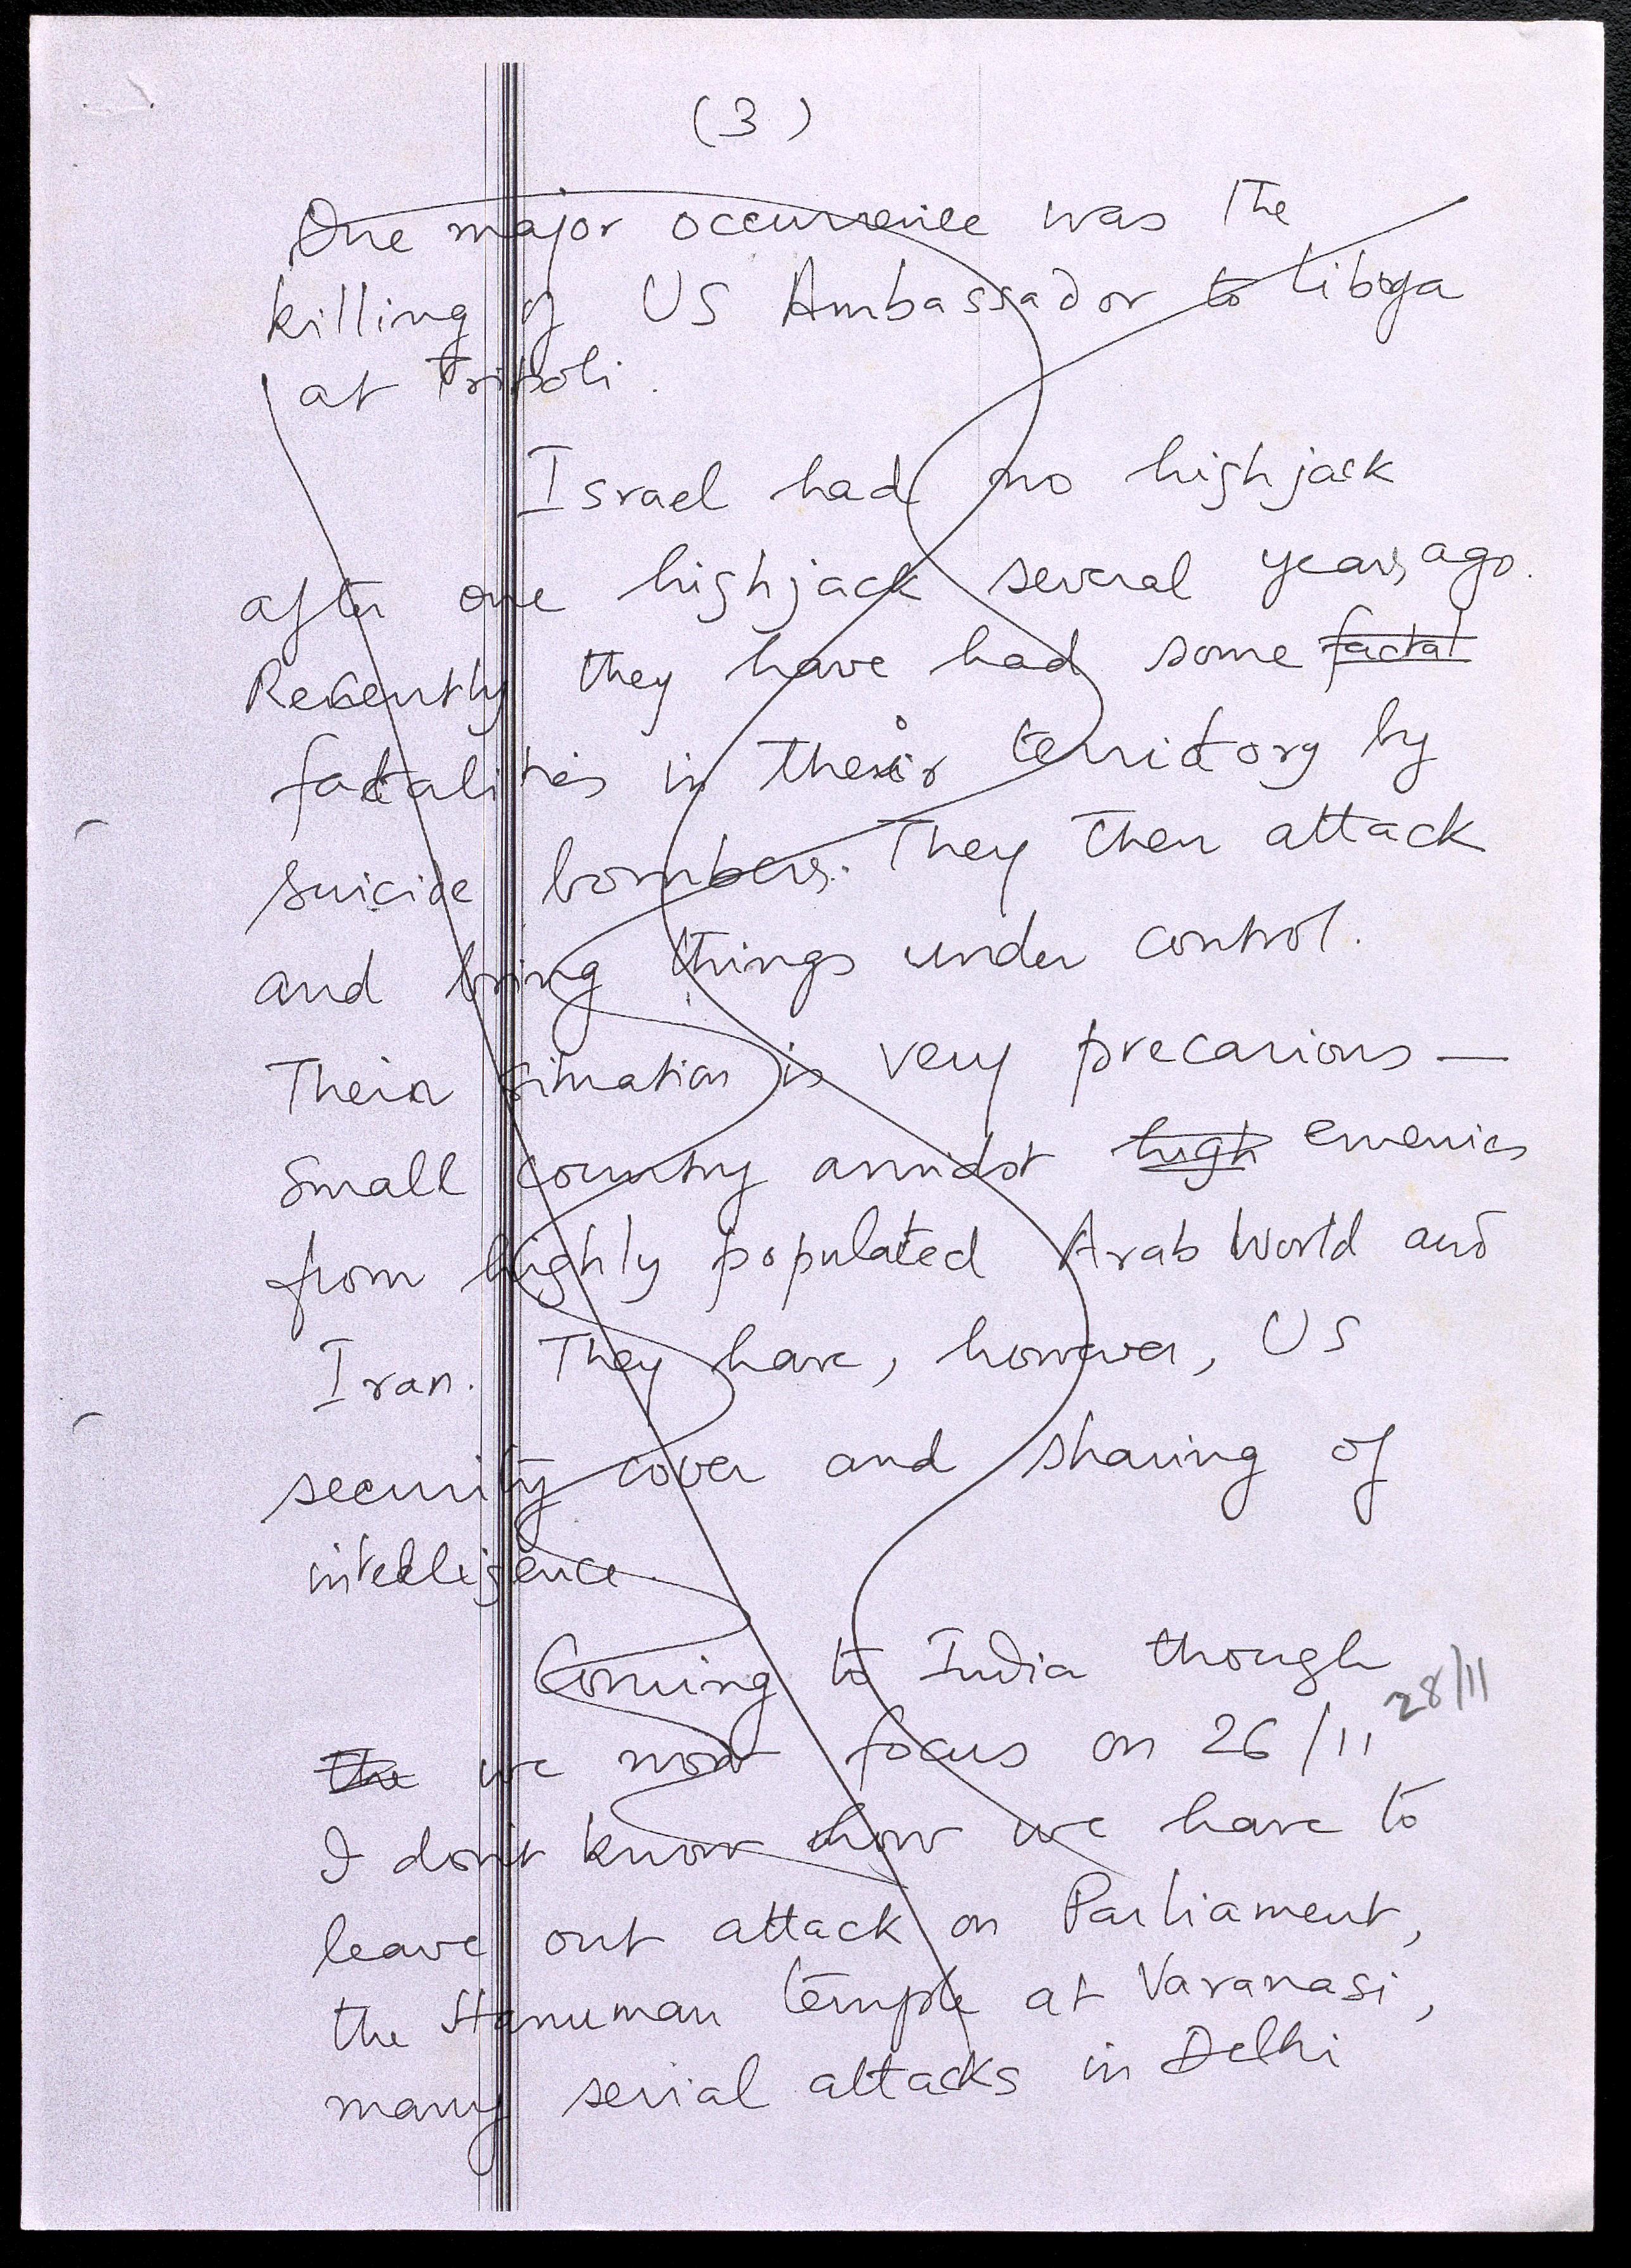 (3)
One major occurrence was the
killing of US Ambassador to Libya
at Tripoli.
Israel had no highjack
after one highjack several years ago.
Recently they have had some factal
fatalities in their territory by
suicide bombers. They then attack
and bring things under control.
Their situation is very precarious —
Small country amidst high enemies
from highly populated Arab World and
Iran. They have, however, US
security cover and sharing of
intelligence.
Coming to India though
28/11
the we now focus on 26/11
I don't know how we have to
leave out attack on Parliament,
the Hanuman temple at Varanasi,
many serial attacks in Delhi